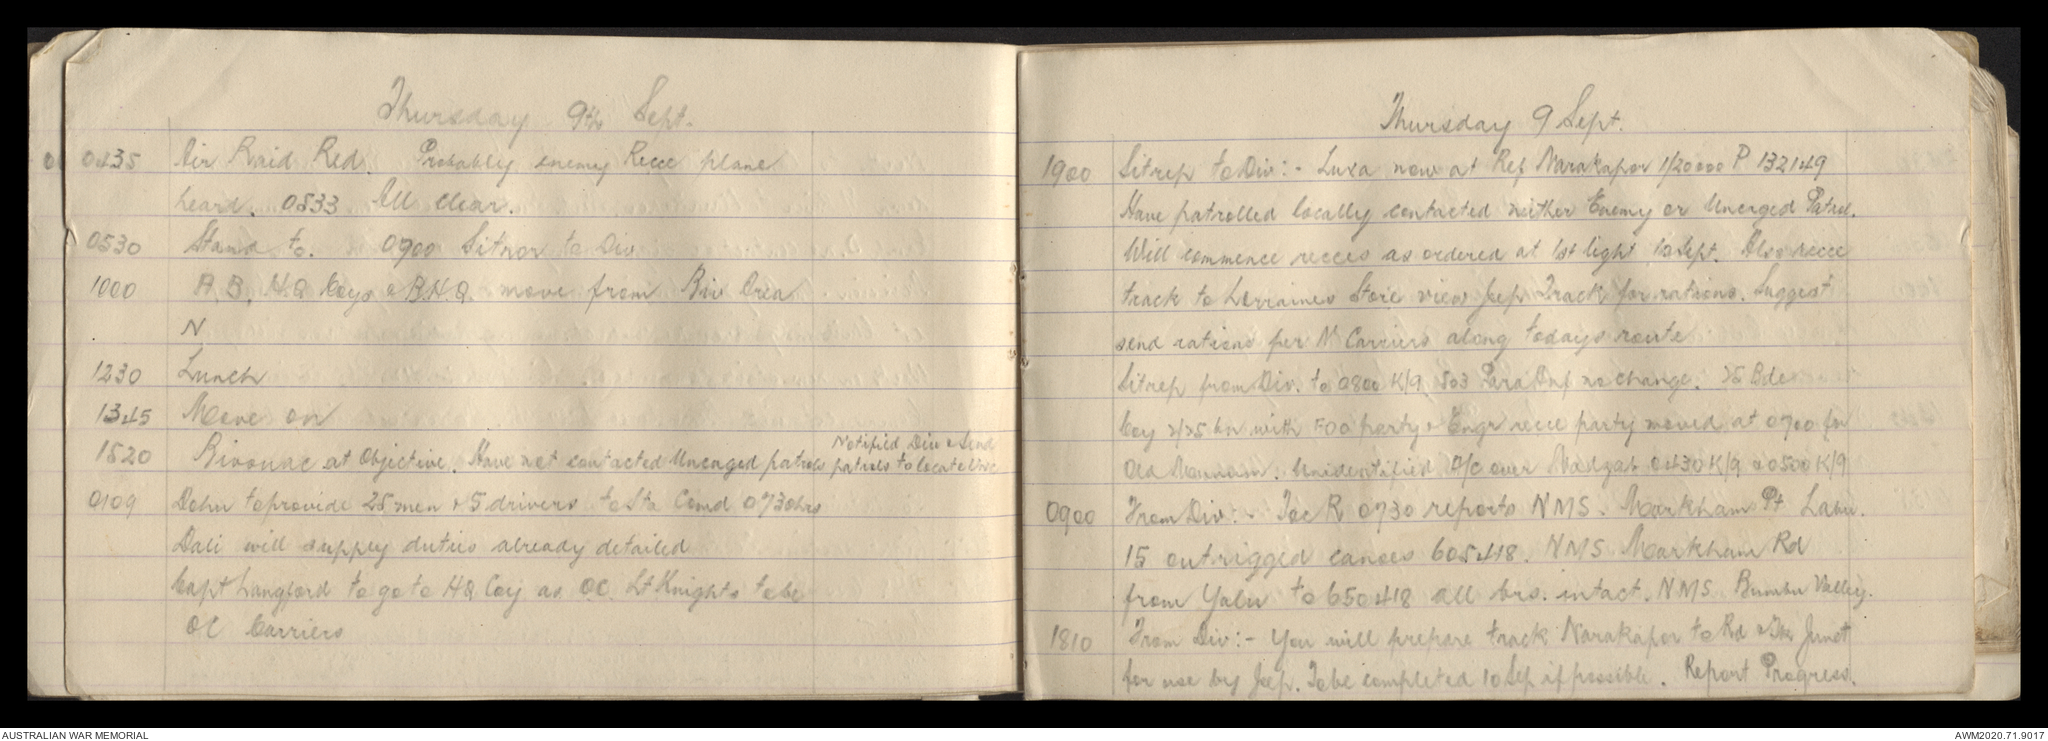 Thursday 9th Sept.
0435 Air Raid Red. Probably enemy Recce plane
heard. 0533 All clear.
0530 Stand to. 0900 Sitrep to Div
1000 A, B, HQ Coys & B.H.Q. move from Biv Area
N
1230 Lunch
1345 Move on
1520 Bivouac at Objective. Have not contacted Uncaged patrols
Notified Div & Send
patrols to locate Unc
0109 Dohu to provide 25 men & 5 drivers to Sta Comd 0730hrs
Dali will supply duties already detailed
Capt Langford to go to HQ Coy as OC Lt Knights to be
OC Carriers
Thursday 9 Sept.
1900 Sitrep to Div:- Luxa now at Ref Narakapor 1/20000 P 132149
Have patrolled locally contacted neither Enemy or Uncaged Patrol.
Will commence recces as ordered at 1st light 10 Sept. Also recce
track to Lorraines Store view Jeep Track for rations. Suggest
send rations per N Carriers along todays route
Sitrep from Div. to 0800 K/9 503 Para Inf no change. 25 Bde
Coy 2/25 Bn with FOO party & Engr recce party moved at 0700 for
Old Munum. Unidentified A/C over Nadzab 0430 K/9 & 0500 K/9
0900 From Div:- Tac R 0730 reports NMS. Markham Pt Labu.
15 outrigged canoes 605418. NMS Markham Rd
from Yalu to 650418 all brs. intact. NMS Bumbu Valley.
1810 From Div:- You will prepare track Narakapor to Rd & Tk Junct
for use by Jeep. To be completed 10 Sep if possible. Report Progress.
AUSTRALIAN WAR MEMORIAL
AWM2020.71.9017